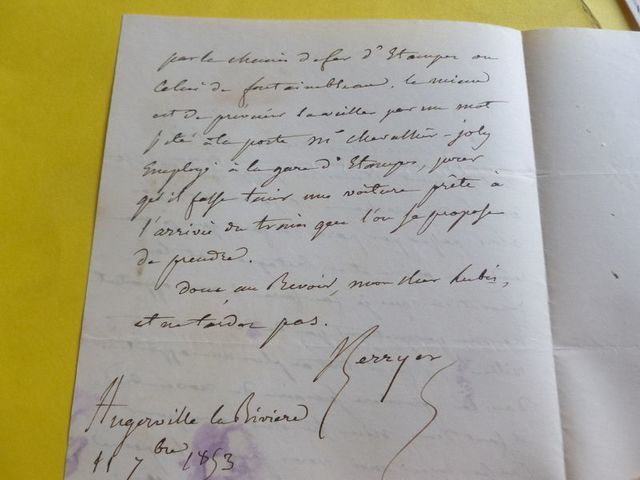 par le chemin de fer d'Etampes ou
celui de fontainebleau. le mieux
est de prévenir la veille par un mot
jeté à la poste Mr chevallier-joly
Employé à la gare d'Etampes, pour
qu'il fasse tenir une voiture prête à
l'arrivée du train que l'on se propose
de prendre.
donc au Revoir, mon cher
et ne tardez pas.
Berryer
Augerville la Rivière
7bre 1853